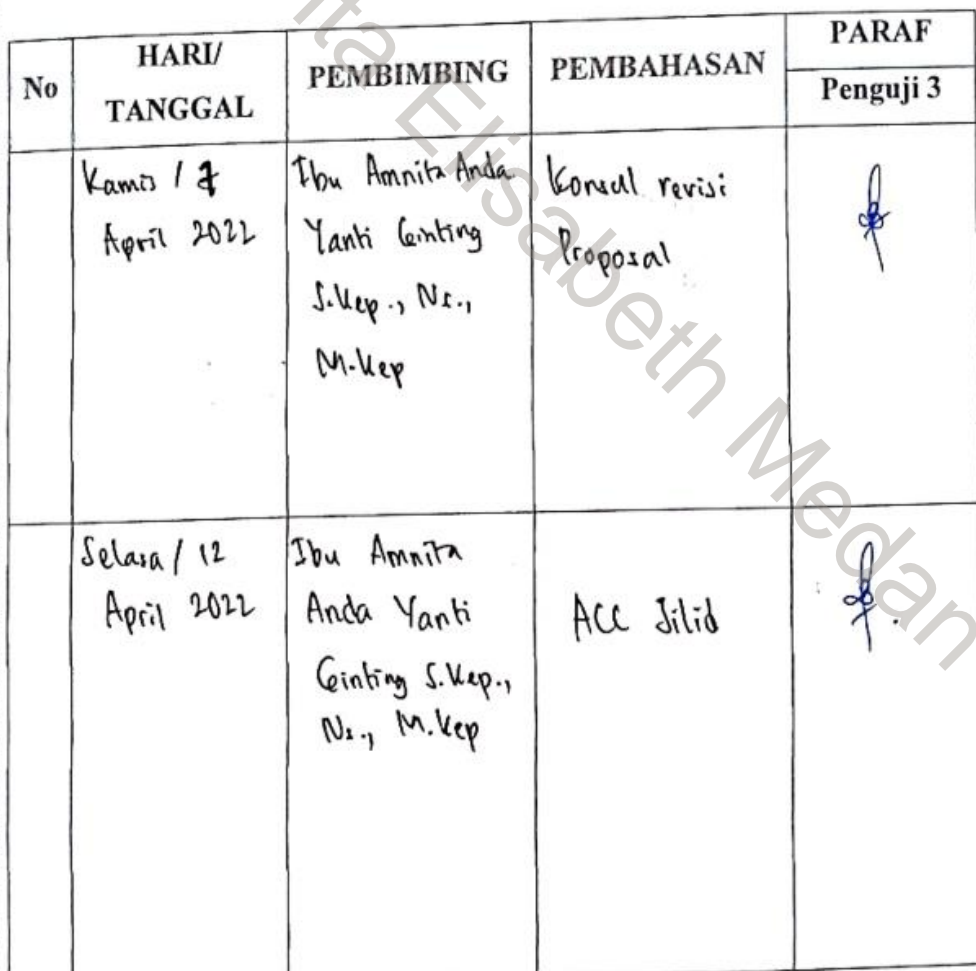 No
HARI/
TANGGAL
PEMBIMBING
PEMBAHASAN
PARAF
Penguji 3
Kamis / 7
April 2022
Ibu Amnita Anda
Yanti Ginting
S.Kep., Ns.,
M.Kep
Konsul revisi
Proposal
Selasa / 12
April 2022
Ibu Amnita
Anda Yanti
Ginting S.Kep.,
Ns., M.Kep
ACC Jilid
ta Elisabeth Medan